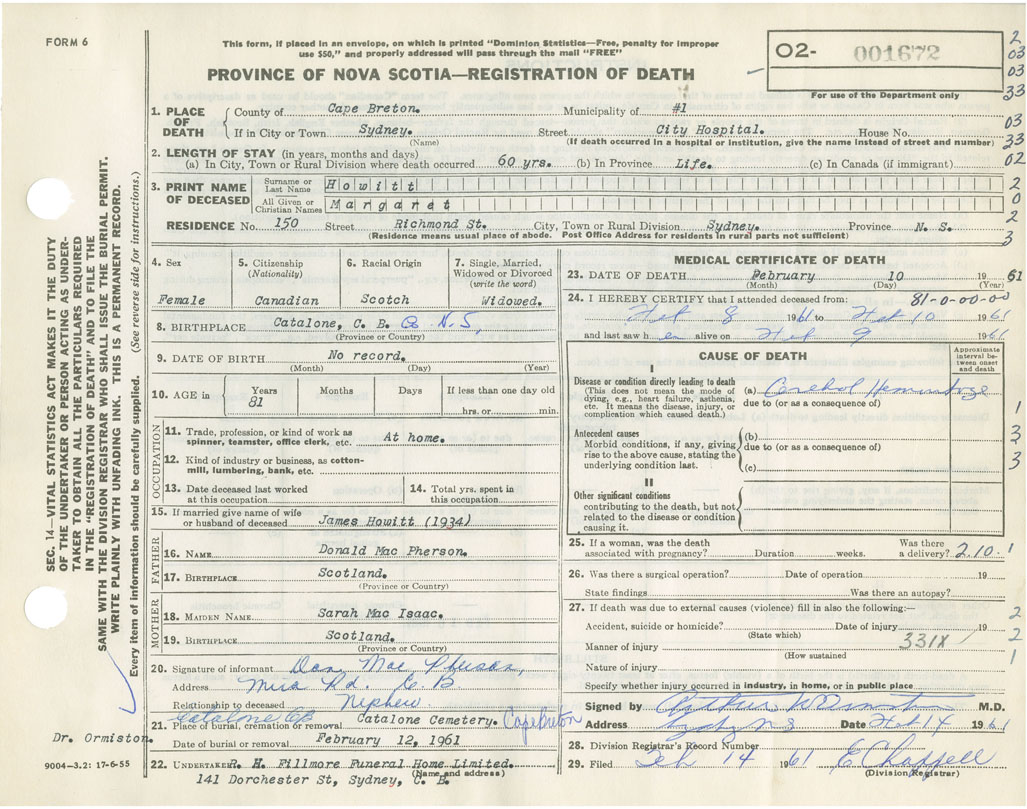 FORM 6
This form, if placed in an envelope, on which is printed "Dominion Statistics—Free, penalty for improper
use $50," and properly addressed will pass through the mail "FREE"
PROVINCE OF NOVA SCOTIA—REGISTRATION OF DEATH
02- 001672
For use of the Department only
2
03
03
33
03
33
02
2
0
2
3
1. PLACE OF DEATH
County of Cape Breton. Municipality of #1
If in City or Town Sydney. Street City Hospital. House No.
(Name) (If death occurred in a hospital or institution, give the name instead of street and number)
2. LENGTH OF STAY (in years, months and days)
(a) In City, Town or Rural Division where death occurred 60 yrs. (b) In Province Life. (c) In Canada (if immigrant)
3. PRINT NAME OF DECEASED
Surname or Last Name Howitt
All Given or Christian Names Margaret
RESIDENCE No. 150 Street Richmond St. City, Town or Rural Division Sydney. Province N. S.
(Residence means usual place of abode. Post Office Address for residents in rural parts not sufficient)
4. Sex
Female
5. Citizenship
(Nationality)
Canadian
6. Racial Origin
Scotch
7. Single, Married,
Widowed or Divorced
(write the word)
Widowed.
8. BIRTHPLACE Catalone, C. B. Co N.S,
(Province or Country)
9. DATE OF BIRTH No record.
(Month) (Day) (Year)
10. AGE in
Years Months Days If less than one day old
81
hrs. or min.
OCCUPATION
11. Trade, profession, or kind of work as
spinner, teamster, office clerk, etc. At home.
12. Kind of industry or business, as cotton-
mill, lumbering, bank, etc.
13. Date deceased last worked
at this occupation
14. Total yrs. spent in
this occupation
15. If married give name of wife
or husband of deceased James Howitt (1934)
FATHER
16. NAME Donald Mac Pherson.
17. BIRTHPLACE Scotland.
(Province or Country)
MOTHER
18. MAIDEN NAME Sarah Mac Isaac.
19. BIRTHPLACE Scotland.
(Province or Country)
20. Signature of informant Dan Mac Pherson,
Address Mira Rd. C. B.
Relationship to deceased Nephew.
Catalone CB
21. Place of burial, cremation or removal Catalone Cemetery. Cape Breton
Date of burial or removal February 12, 1961
22. UNDERTAKER R. H. Fillmore Funeral Home Limited.
(Name and address)
141 Dorchester St, Sydney, C. B.
MEDICAL CERTIFICATE OF DEATH
23. DATE OF DEATH February 10 1961
(Month) (Day) (Year)
24. I HEREBY CERTIFY that I attended deceased from: 81-0-00-00
Feb 8 1961 to Feb 10 1961
and last saw her alive on Feb 9 1961
CAUSE OF DEATH
Approximate
interval be-
tween onset
and death
I
Disease or condition directly leading to death
(This does not mean the mode of
dying, e.g., heart failure, asthenia,
etc. It means the disease, injury, or
complication which caused death.)
(a) Cerebral Hemorrhage
due to (or as a consequence of)
Antecedent causes
Morbid conditions, if any, giving
rise to the above cause, stating the
underlying condition last.
(b)
due to (or as a consequence of)
(c)
II
Other significant conditions
contributing to the death, but not
related to the disease or condition
causing it.
1
3
3
25. If a woman, was the death
associated with pregnancy? Duration weeks. Was there
a delivery? 2.10. 1
26. Was there a surgical operation? Date of operation 19
State findings Was there an autopsy?
27. If death was due to external causes (violence) fill in also the following:—
Accident, suicide or homicide? Date of injury 19
(State which)
Manner of injury 331X
(How sustained
Nature of injury
Specify whether injury occurred in industry, in home, or in public place
2
2
1
Signed by Arthur W Ormiston M.D.
Address Sydney N S Date Feb 14 1961
28. Division Registrar's Record Number
29. Filed Feb 14 1961 E Chappell
(Division Registrar)
SEC. 14—VITAL STATISTICS ACT MAKES IT THE DUTY
OF THE UNDERTAKER OR PERSON ACTING AS UNDER-
TAKER TO OBTAIN ALL THE PARTICULARS REQUIRED
IN THE "REGISTRATION OF DEATH" AND TO FILE THE
SAME WITH THE DIVISION REGISTRAR WHO SHALL ISSUE THE BURIAL PERMIT.
WRITE PLAINLY WITH UNFADING INK. THIS IS A PERMANENT RECORD.
Every item of information should be carefully supplied. (See reverse side for instructions.)
Dr. Ormiston.
9004-3.2: 17-6-55